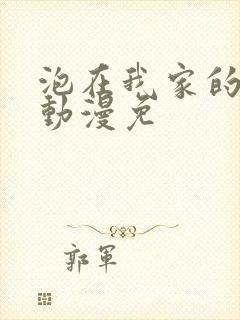 泡在我家的
動漫免
郭軍